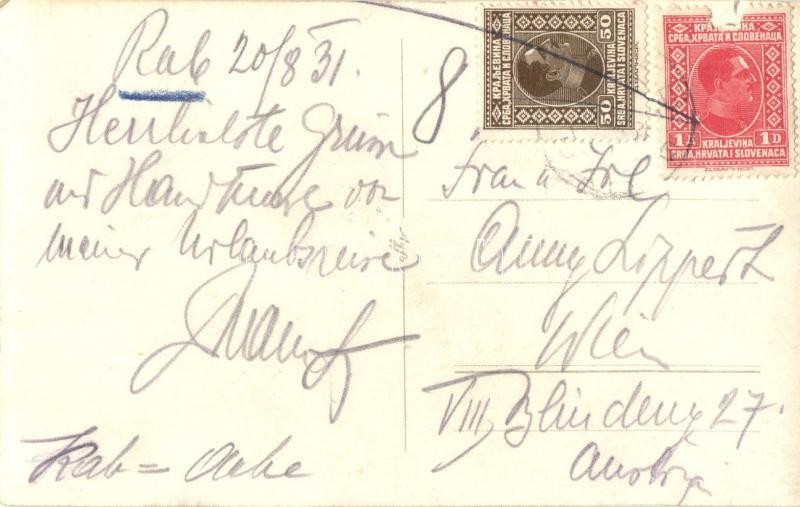 Rab 20/8 31.
Herzlichste Grüsse
und Handküsse von
meiner Urlaubsreise
Rab = Arbe
8
КРАЉЕВИНА
СРБА, ХРВАТА И СЛОВЕНАЦА
50
50
KRALJEVINA
SRBA, HRVATA I SLOVENACA
КРАЉЕВИНА
СРБА, ХРВАТА И СЛОВЕНАЦА
1 1D
KRALJEVINA
SRBA, HRVATA I SLOVENACA
Frau u Frl
Anny Lippert
Wien
VIII, Blindeng 27.
Austria